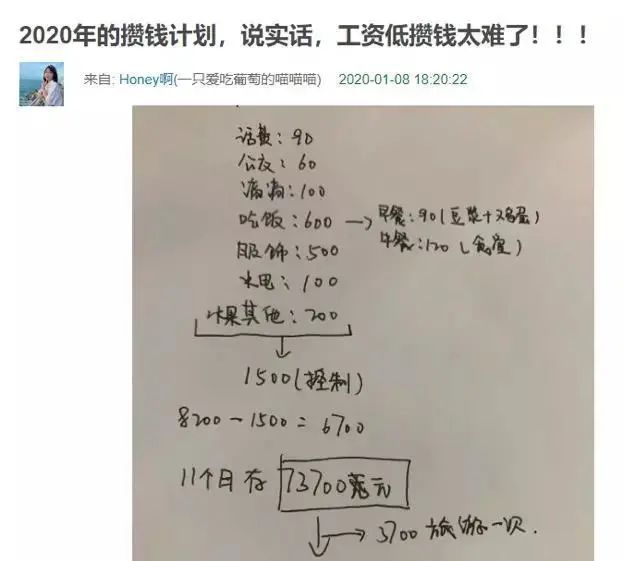 2020年的攒钱计划，说实话，工资低攒钱太难了！！！
来自: Honey啊(一只爱吃葡萄的喵喵喵) 2020-01-08 18:20:22
话费：90
公交：60
滴滴：100
吃饭：600 → 早餐：90（豆浆+鸡蛋）
午餐：120（食堂）
服饰：500
水电：100
水果其他：200
1500（控制）
8200－1500＝6700
11个月存 73700元
→ 3700 旅游一次.